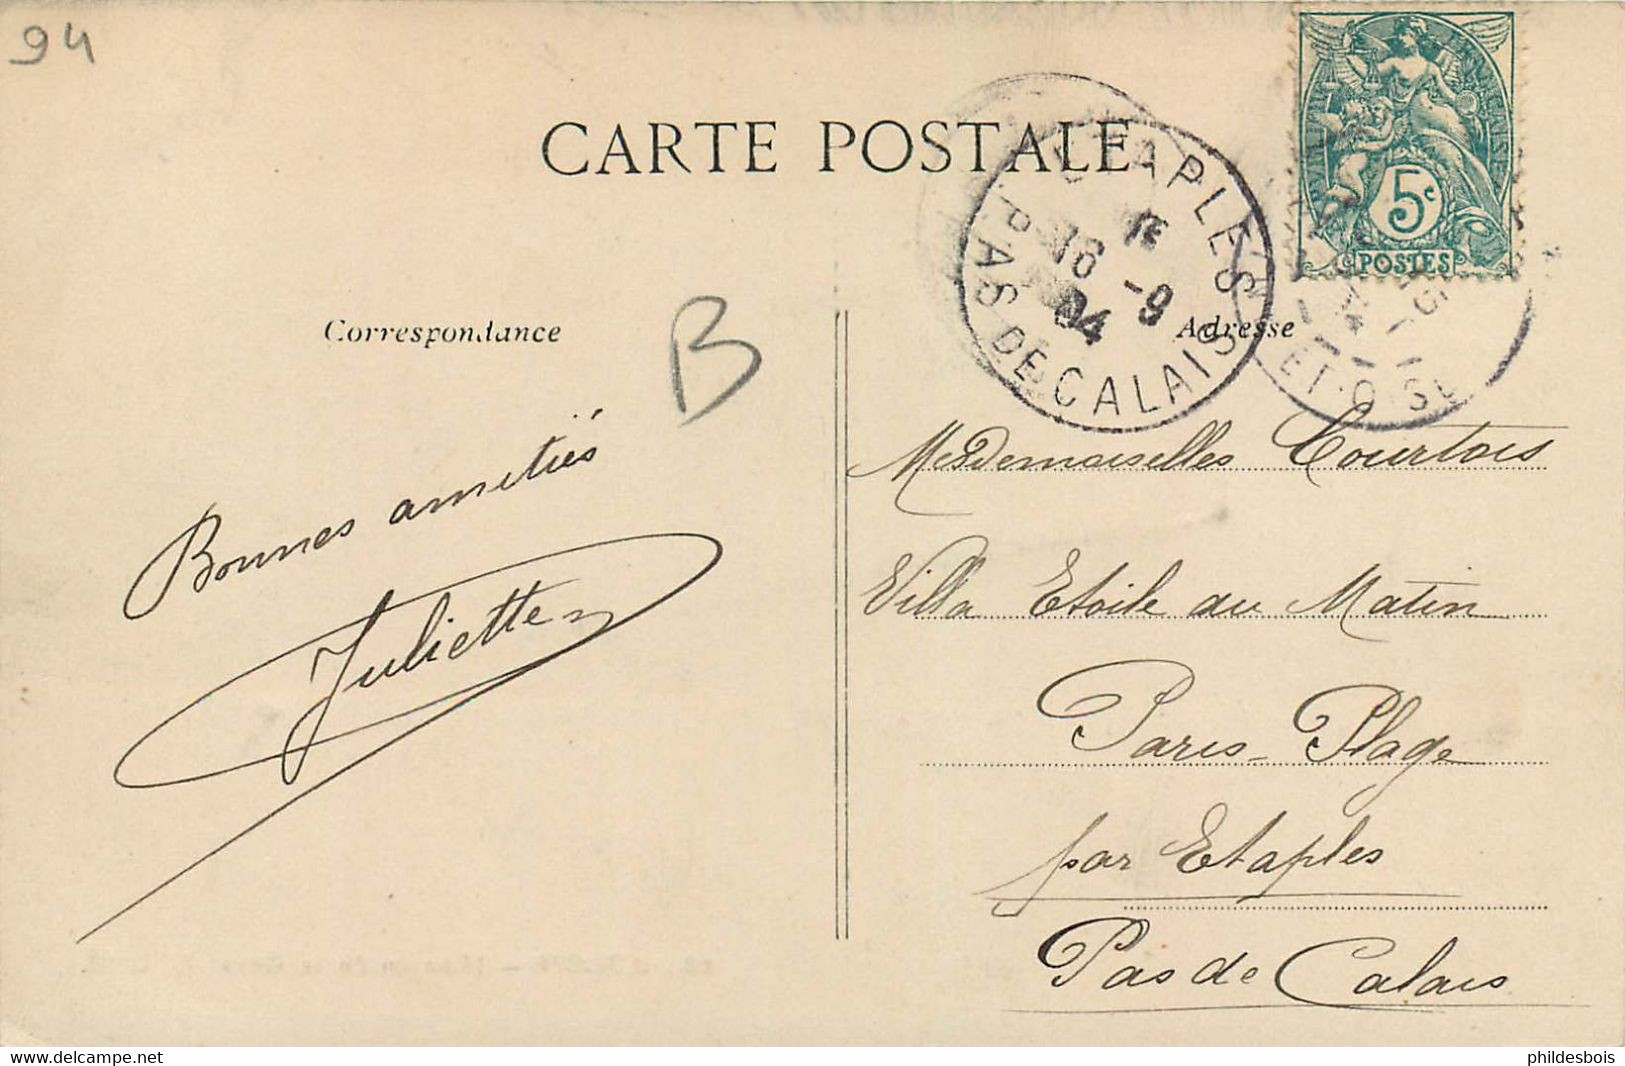 94
CARTE POSTALE
ETAPLES
16 -9
04
PAS DE CALAIS
5c
POSTES
ET-OISE
Correspondance
Adresse
B
Bonnes amitiés
Juliette
Mesdemoiselles Courtois
Villa Etoile du Matin
Paris-Plage
par Etaples
Pas de Calais
www.delcampe.net
phildesbois